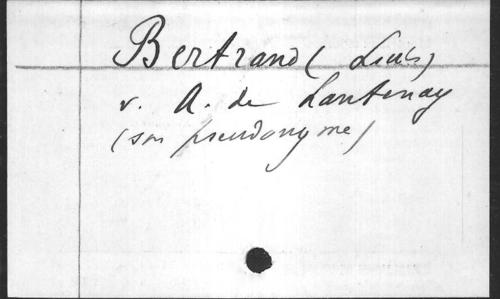 Bertrand (Louis)
v. A. de Lantenay
(son pseudonyme)